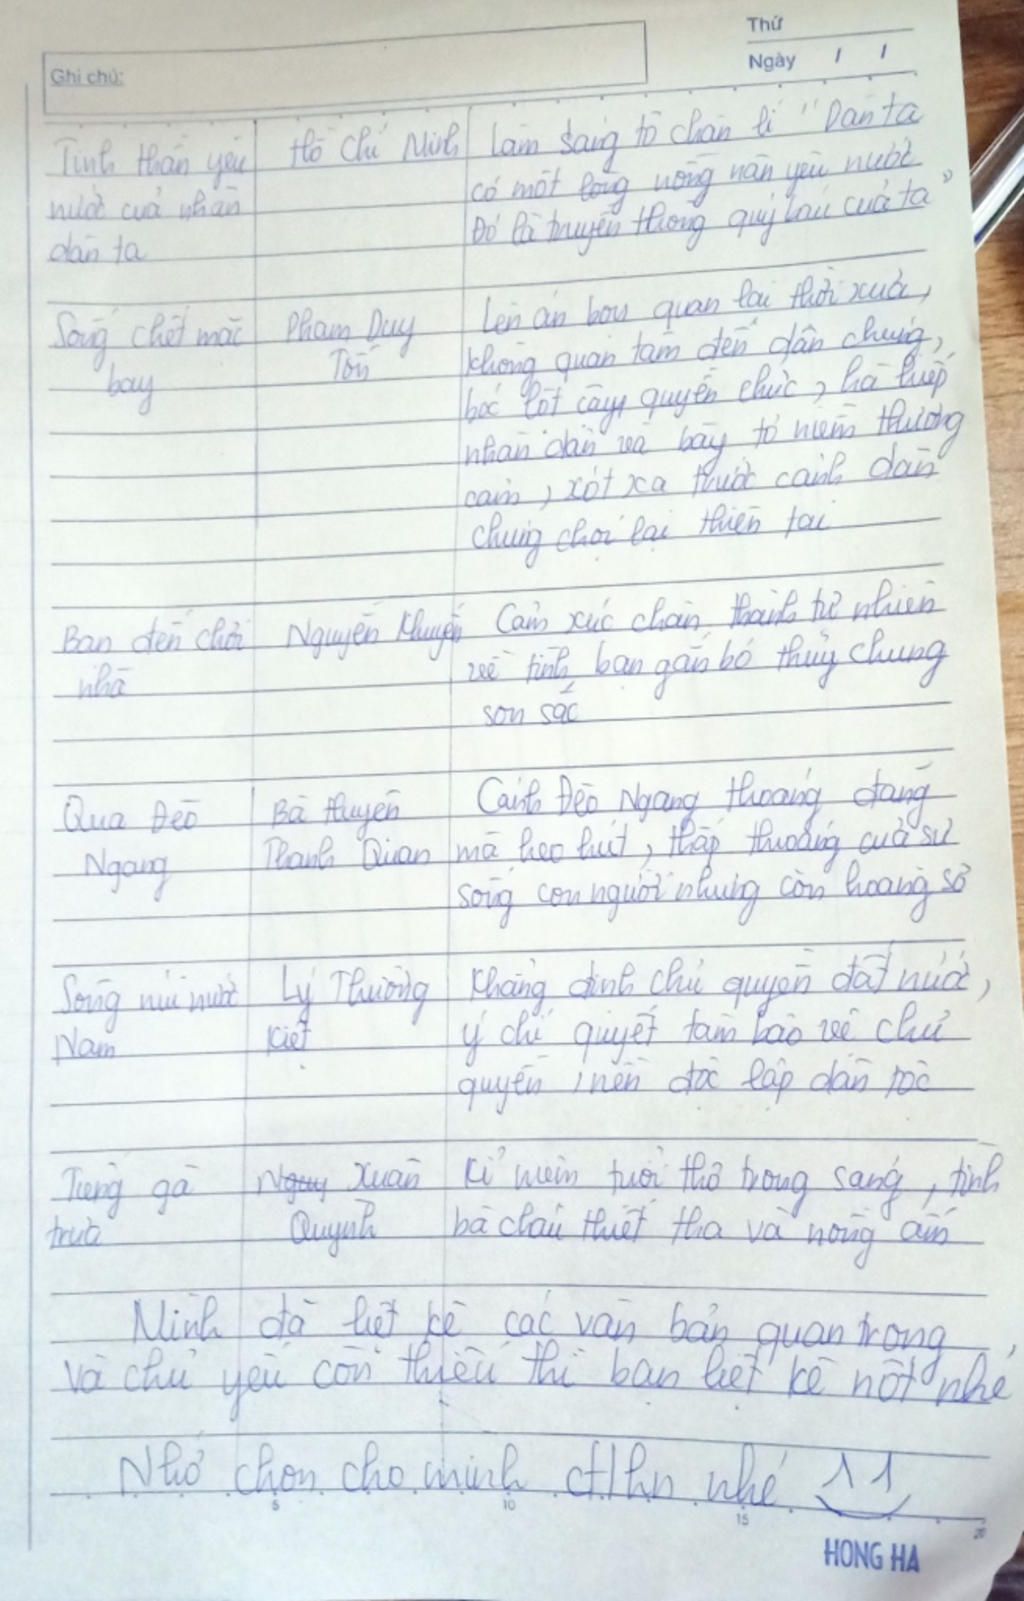 Thứ
Ngày / /
Ghi chú:
Tinh thần yêu
nước của nhân
dân ta
Hồ Chí Minh
Làm sáng tỏ chân lí "Dân ta
có một lòng nồng nàn yêu nước
Đó là truyền thống quý báu của ta"
Sống chết mặc
bay
Phạm Duy
Tốn
Lên án bọn quan lại thời xưa,
không quan tâm đến dân chúng,
bóc lột cậy quyền chức, hà hiếp
nhân dân và bày tỏ niềm thương
cảm, xót xa trước cảnh dân
chúng chơi lại thiên tai
Bạn đến chơi
nhà
Nguyễn Khuyến
Cảm xúc chân thành tự nhiên
về tình bạn gắn bó thủy chung
son sắc
Qua Đèo
Ngang
Bà Huyện
Thanh Quan
Cảnh Đèo Ngang thoáng đãng
mà heo hút, thấp thoáng của sự
sống con người nhưng còn hoang sơ
Sông núi nước
Nam
Lý Thường
Kiệt
Khẳng định chủ quyền đất nước,
ý chí quyết tâm bảo vệ chủ
quyền, nền độc lập dân tộc
Tiếng gà
trưa
Nguy Xuân
Quỳnh
Kỉ niệm tuổi thơ trong sáng, tình
bà cháu thiết tha và nồng ấm
Mình đã liệt kê các văn bản quan trọng
và chủ yếu còn thiếu thì bạn liệt kê nốt nhé
Nhớ chọn cho mình ctlhn nhé
5 10 15 20
HONG HA